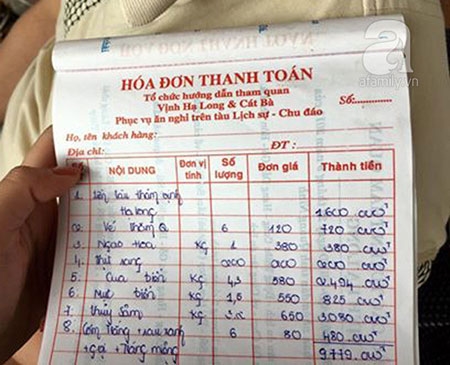 a
afamily.vn
HÓA ĐƠN THANH TOÁN
Tổ chức hướng dẫn tham quan
Vịnh Hạ Long & Cát Bà
Số:..............
Phục vụ ăn nghỉ trên tàu Lịch sự - Chu đáo
Họ, tên khách hàng:
Địa chỉ: ĐT :
NỘI DUNG Đơn vị tính Số lượng Đơn giá Thành tiền
1 tàu thăm
Hạ Long 1600.000đ
2. Vé thăm 6 120 720.000đ
3. Ngao Hoa Kg 1 380 380.000đ
4. 200 200 200.000đ
5. Cua biển Kg 4,3 580 2.494.000đ
6. Mực biển Kg 1,5 550 825.000đ
7. Kg 650 3080.000đ
8. Cơm trắng + rau xanh 6 80 480.000đ
+ Tráng miệng 9.779.000đ